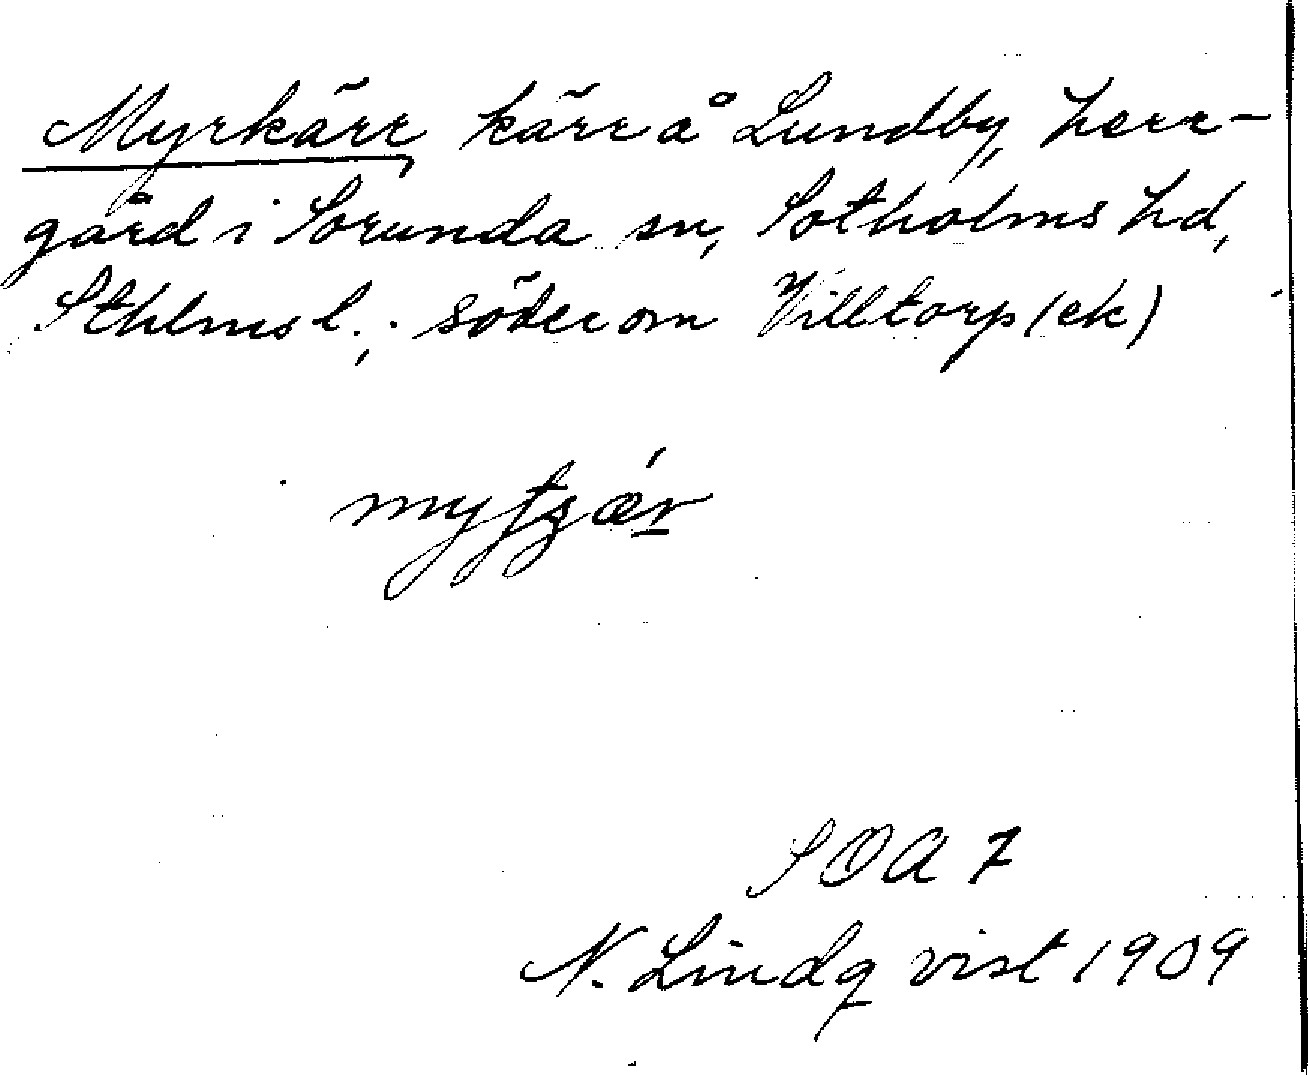 Myrkärr, kärr å Lundby, herr-
gård i Sorunda sn, Sotholms hd,
Sthlms l.; söder om Villtorp (ek)
SOA 7
N. Lindqvist 1909